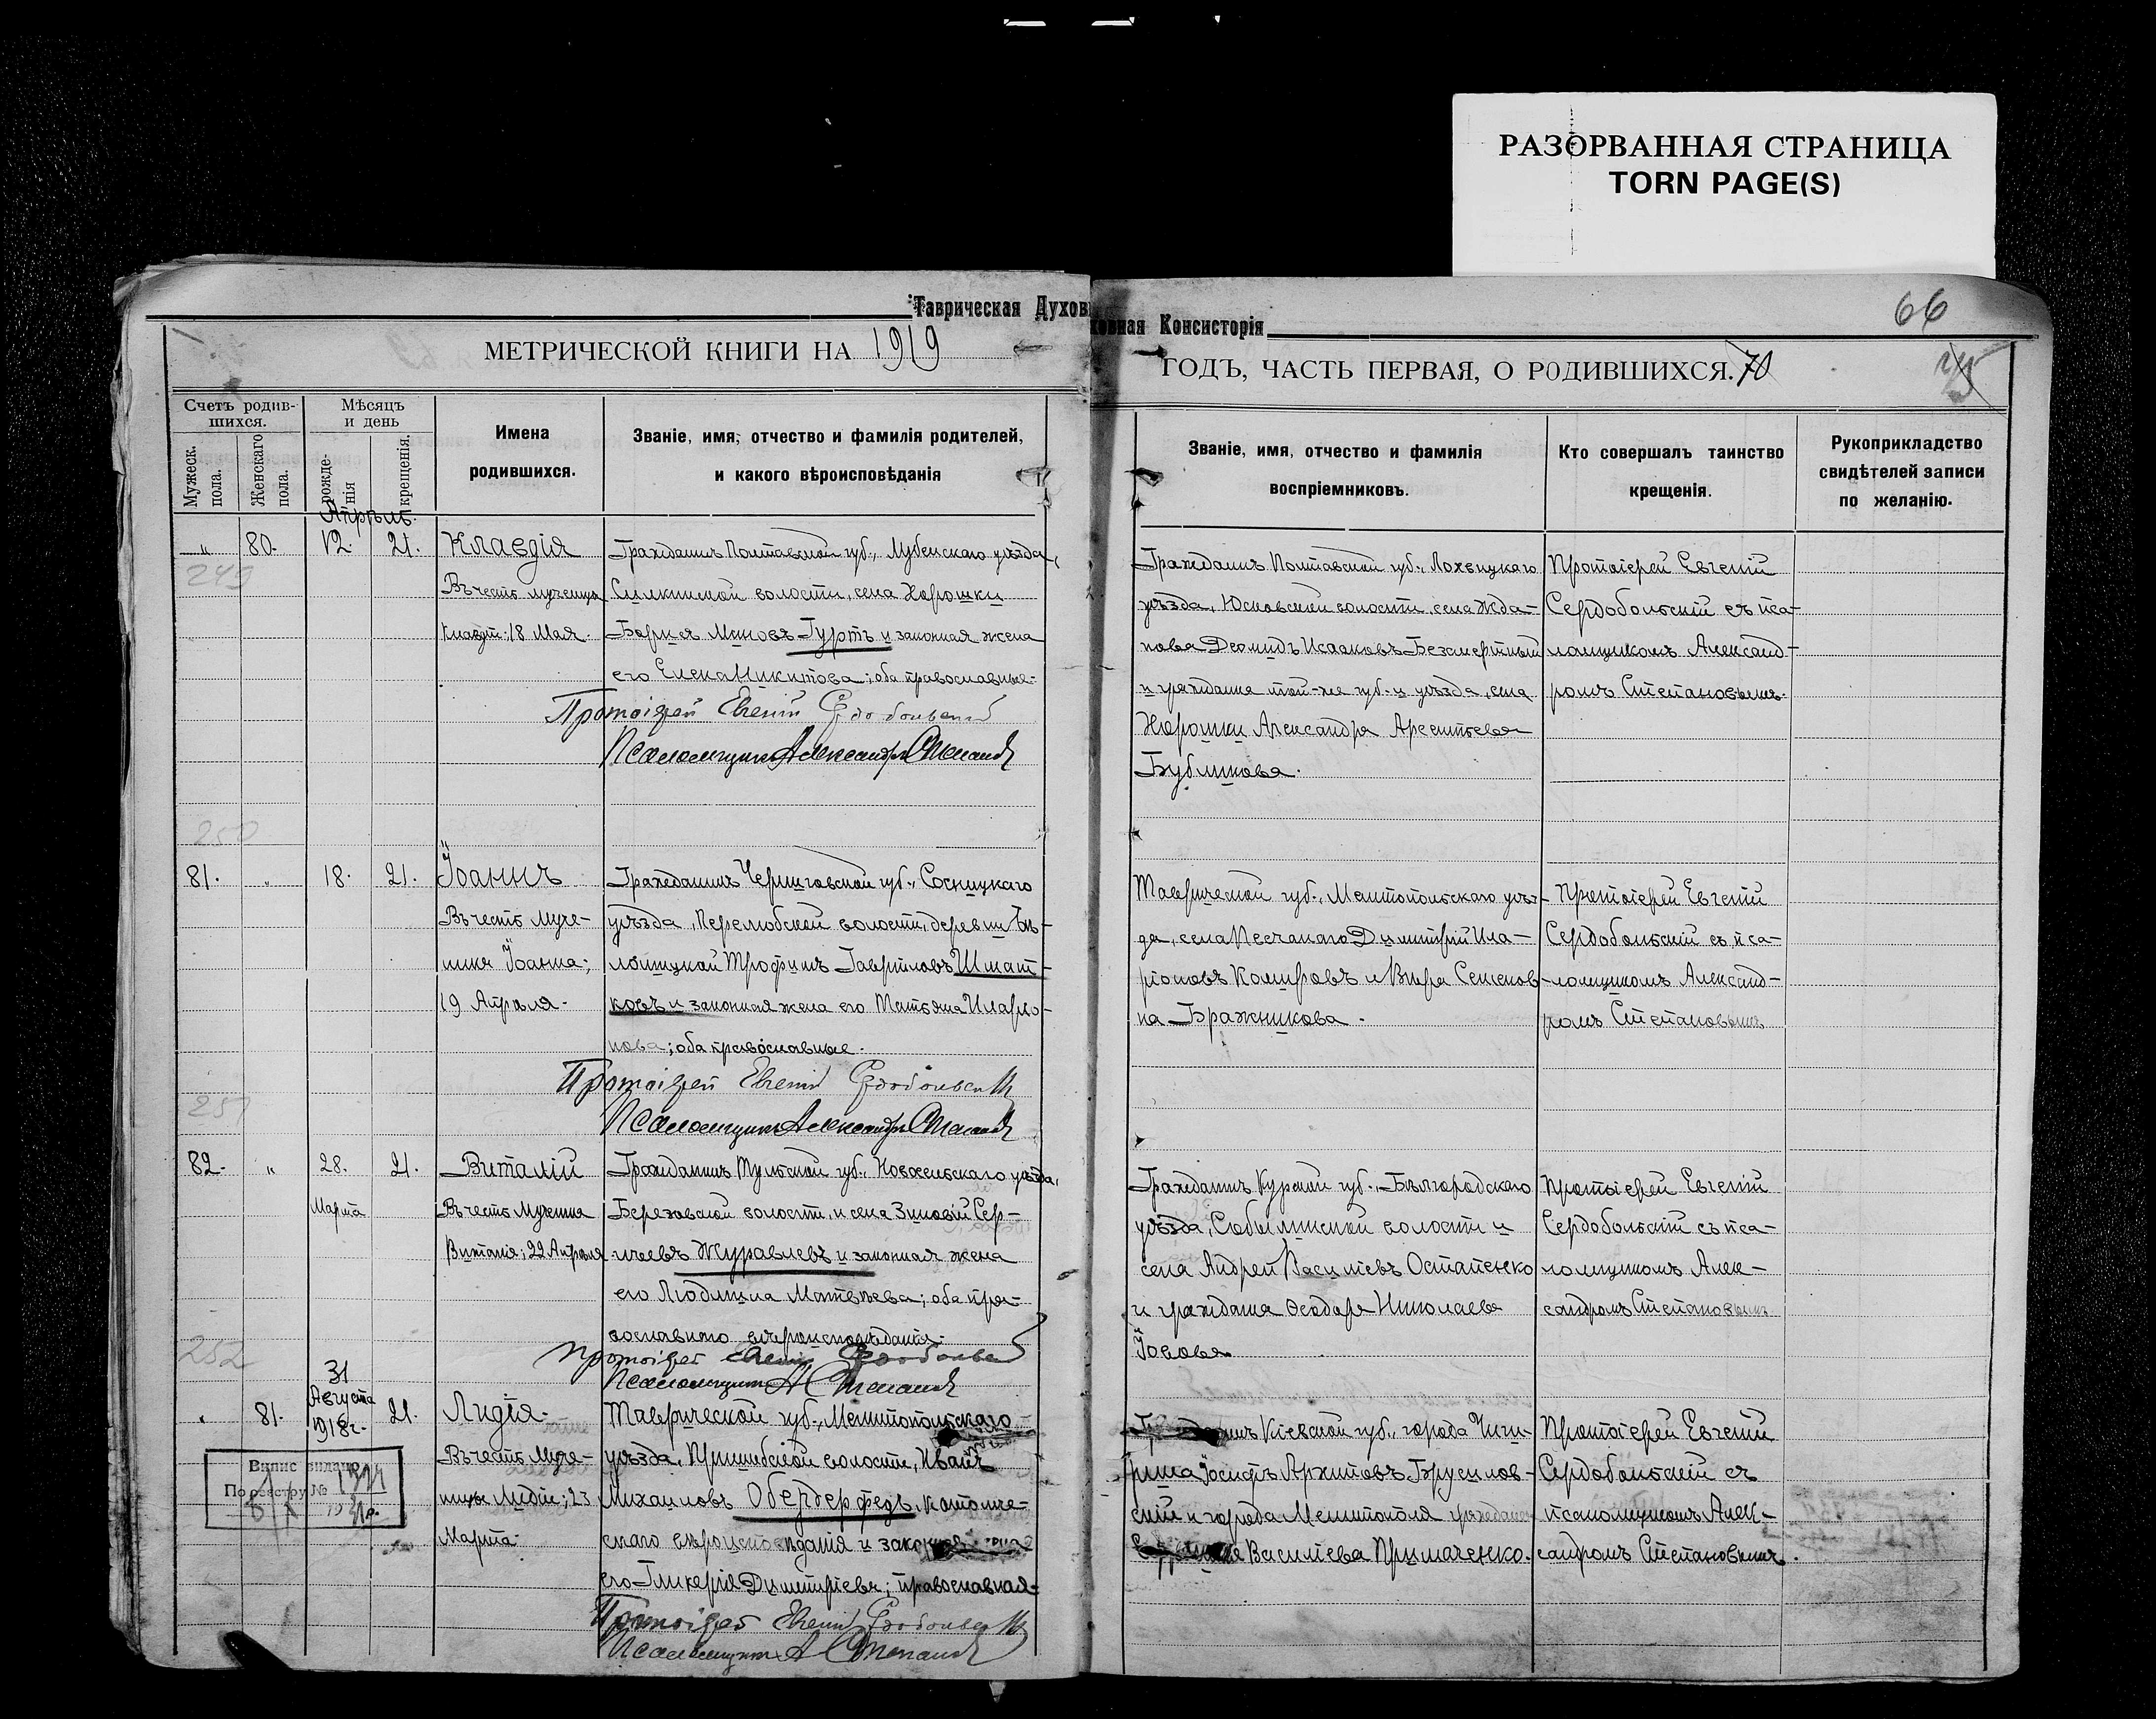 РАЗОРВАННАЯ СТРАНИЦА
TORN PAGE(S)
Таврическая Духов
овная Консисторія
66
МЕТРИЧЕСКОЙ КНИГИ НА 1919
ГОДЪ, ЧАСТЬ ПЕРВАЯ, О РОДИВШИХСЯ. 70
Счетъ родив-
шихся.
Мужеск.
пола.
Женскаго
пола.
Мѣсяцъ
и день
рожде-
нія
крещенія.
Имена
родившихся.
Званіе, имя, отчество и фамилія родителей,
и какого вѣроисповѣданія
Званіе, имя, отчество и фамилія
воспріемниковъ.
Кто совершалъ таинство
крещенія.
Рукоприкладство
свидѣтелей записи
по желанію.
Апрѣль.
249
„ 80. 12. 21.
Клавдія
Въ честь мученицы
Клавдіи; 18 Мая.
Гражданинъ Полтавской губ., Лубенскаго уѣзда,
волости, села Хорошки
Борисъ Миновъ Гуртъ и законная жена
его Елена Никитова; оба православные.
Протоіерей Евгеній Сердобольскій
Псаломщикъ Александръ Степановъ
Гражданинъ Полтавской губ., Лохвицкаго
уѣзда, Юсковской волости, села Жда-
нова Деомидъ Исааковъ Безсмертный
и гражданка той-же губ. и уѣзда, села
Хорошки Александра Арсентьева
Бубликова.
Протоіерей Евгеній
Сердобольскій съ пса-
ломщикомъ Александ-
ромъ Степановымъ.
250
81. „ 18. 21.
Іоаннъ
Въ честь Муче-
ника Іоанна;
19 Апрѣля.
Гражданинъ Черниговской губ., Сосницкаго
уѣзда, Перелюбской волости, деревни Бѣ-
лоицкой Трофимъ Гавриловъ Шмат-
ковъ и законная жена его Татьяна Иларіо-
нова; оба православные.
Протоіерей Евгеній Сердобольскій
Псаломщикъ Александръ Степановъ
Таврической губ., Мелитопольскаго уѣз-
да, села Песчанаго Димитрій Ила-
ріоновъ Комировъ и Вѣра Семенов-
на Бражникова.
Протоіерей Евгеній
Сердобольскій съ пса-
ломщикомъ Александ-
ромъ Степановымъ
251
82. „ 28. 21.
Марта
Виталій
Въ честь Мученика
Виталія; 22 Апрѣля
Гражданинъ Тульской губ., Новосильскаго уѣзда,
Березовской волости, и села Зиновій Сер-
гѣевъ Журавлевъ и законная жена
его Людмила Матвѣева; оба пра-
вославнаго вѣроисповѣданія.
Протоіерей Евгеній Сердобольскій
Псаломщикъ А Степановъ
Гражданинъ Курской губ., Бѣлгородскаго
уѣзда, волости и
села Андрей Васильевъ Остапенко
и гражданка Ѳеодора Николаева
Іовова.
Протоіерей Евгеній
Сердобольскій съ пса-
ломщикомъ Алек-
сандромъ Степановымъ
252
„ 81. 31
Августа
1918г. 21.
Лидія.
Въ честь Муче-
ницы Лидіи; 23
Марта.
Таврической губ., Мелитопольскаго
уѣзда, Пришибской волости, Иванъ
Михаиловъ Обердерфедъ, католиче-
скаго вѣроисповѣданія и законная жена
его Гликерія Димитріева; православная.
Протоіерей Евгеній Сердобольскій
Псаломщикъ А Степановъ
Кіевской губ., города Чиги-
рина Іосифъ Архиповъ Брусилов-
скій и города Мелитополя гражданка
Васильева Примаченко.
Протоіерей Евгеній
Сердобольскій съ
псаломщикомъ Алек-
сандромъ Степановымъ.
Випис видано
По реєстру №